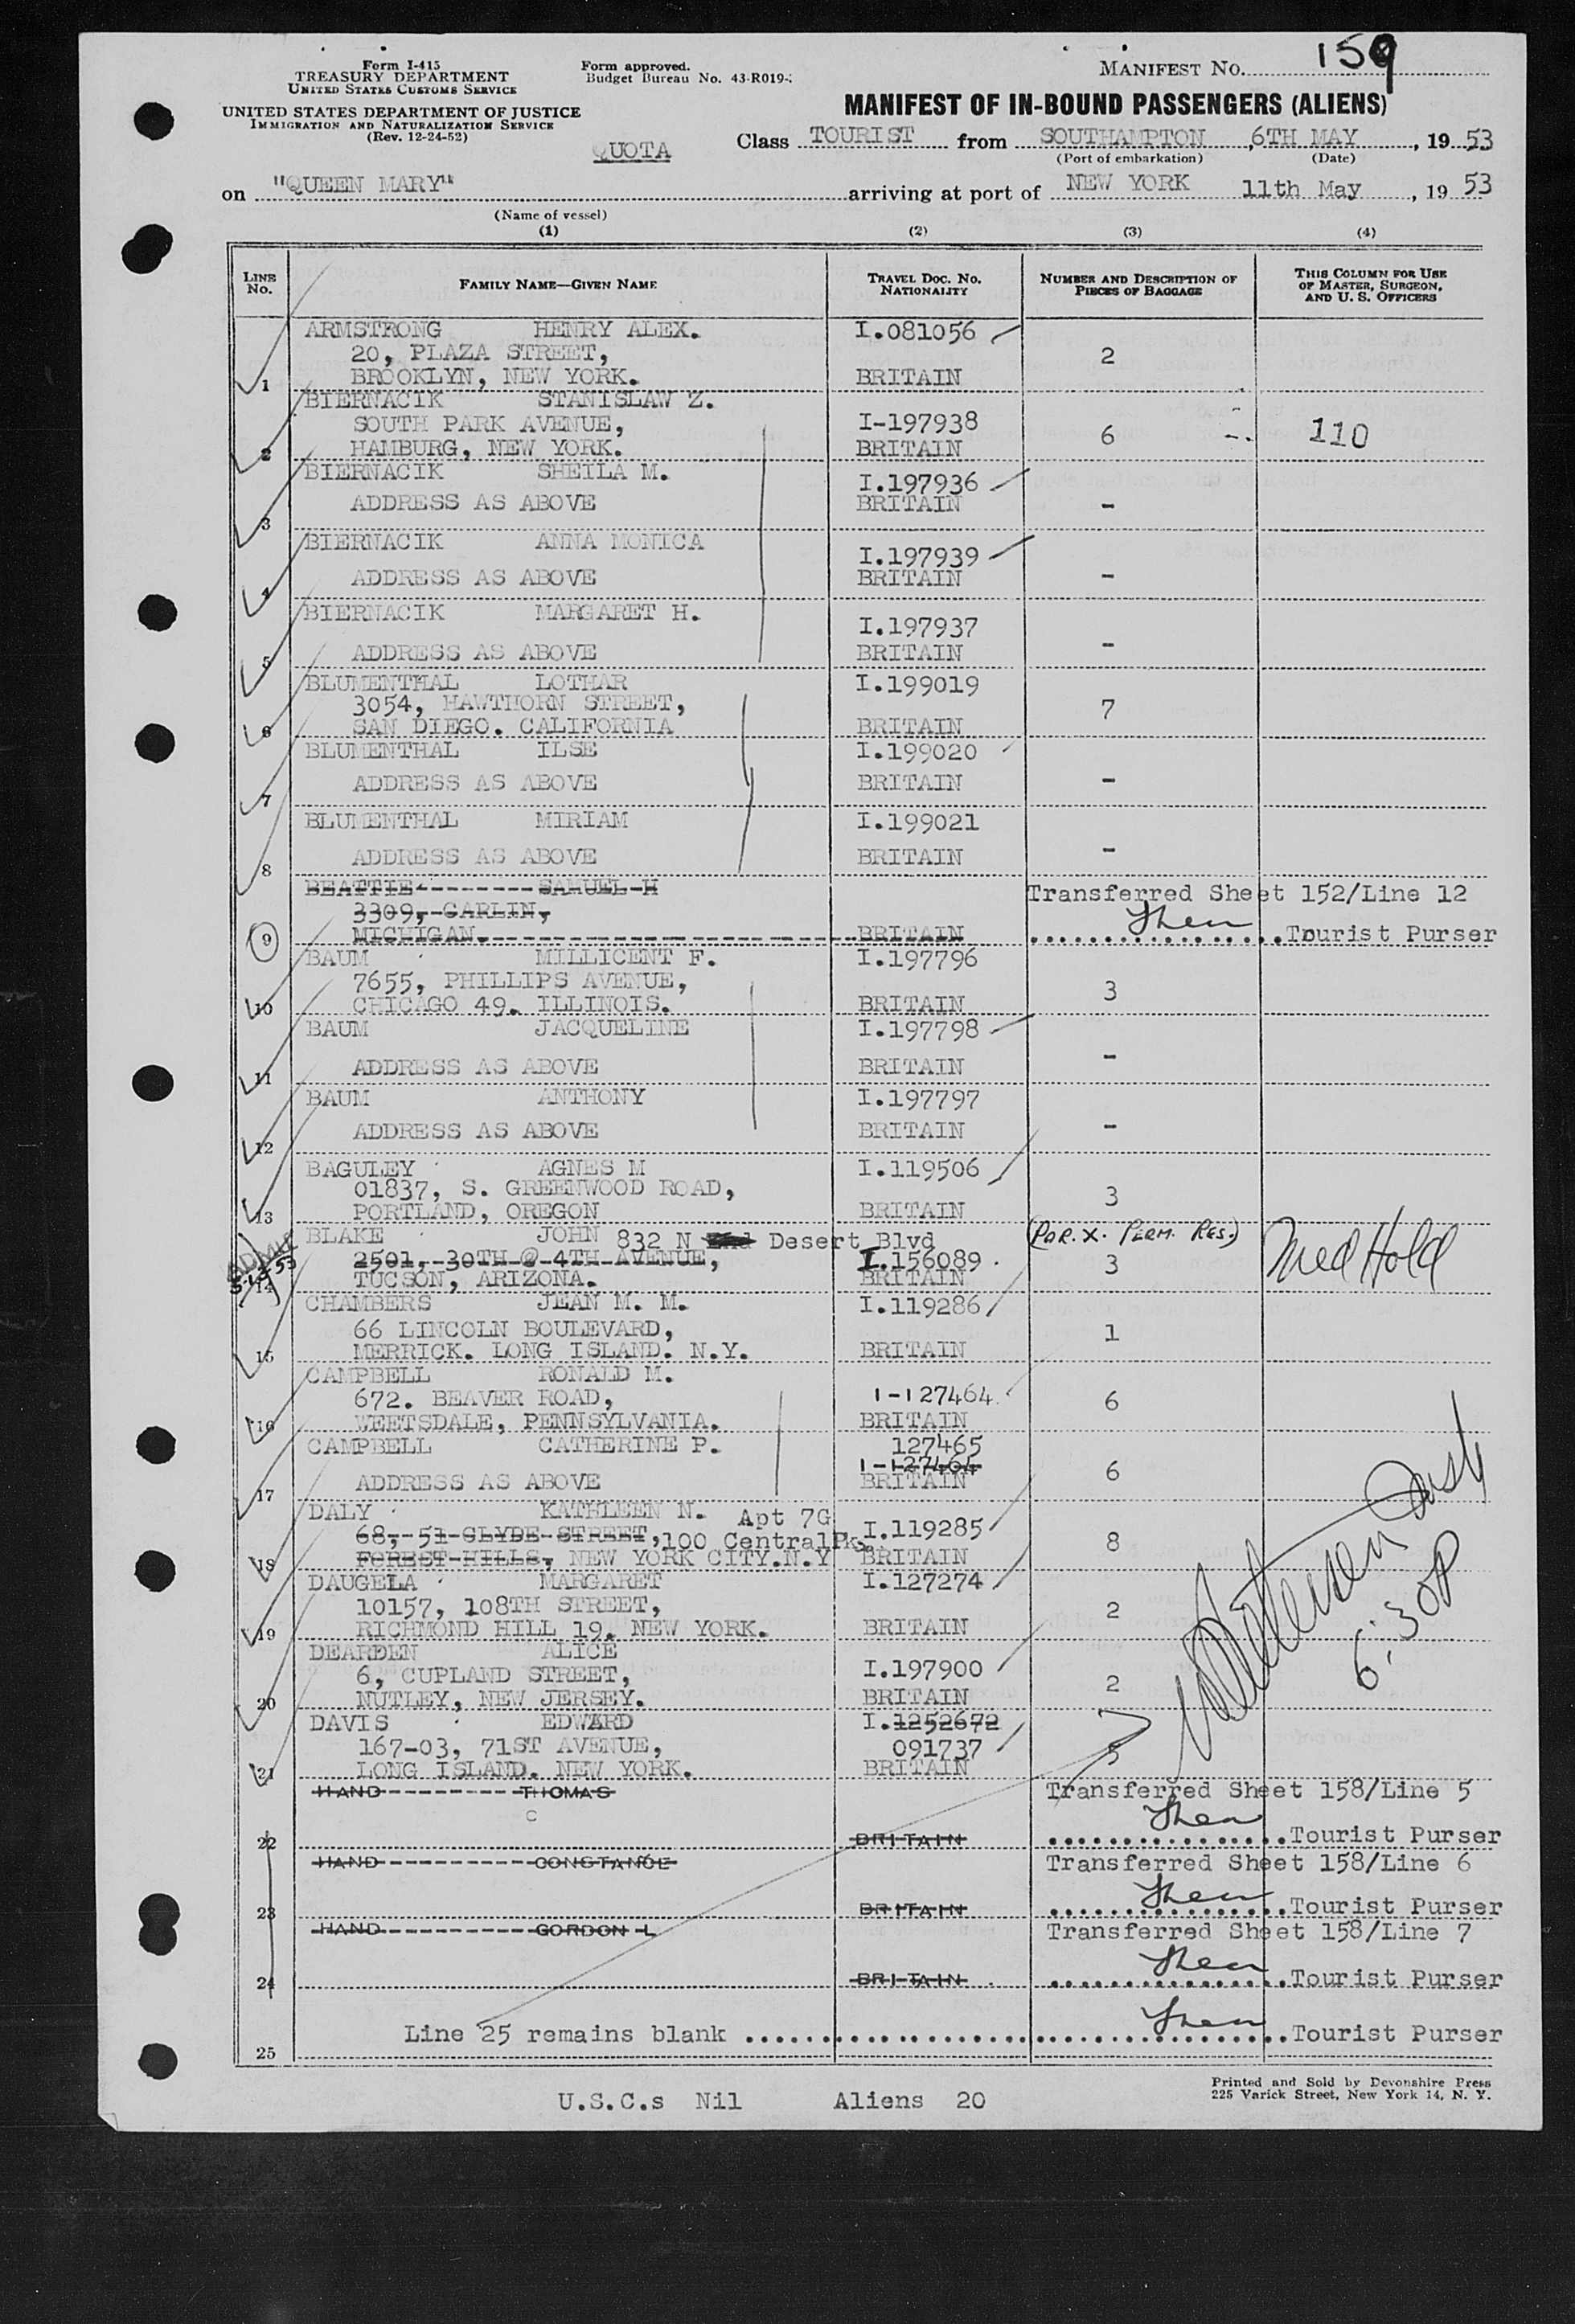 Form I-415
TREASURY DEPARTMENT
UNITED STATES CUSTOMS SERVICE
UNITED STATES DEPARTMENT OF JUSTICE
IMMIGRATION AND NATURALIZATION SERVICE
(Rev. 12-24-52)
Form approved.
Budget Bureau No. 43-R019-
MANIFEST NO. 159
MANIFEST OF IN-BOUND PASSENGERS (ALIENS)
QUOTA
Class TOURIST from SOUTHAMPTON, 6TH MAY, 1953
(Port of embarkation) (Date)
on "QUEEN MARY" arriving at port of NEW YORK 11th May, 1953
(Name of vessel)
(1) (2) (3) (4)
LINE NO. FAMILY NAME—GIVEN NAME TRAVEL DOC. NO. NATIONALITY NUMBER AND DESCRIPTION OF PIECES OF BAGGAGE THIS COLUMN FOR USE OF MASTER, SURGEON, AND U. S. OFFICERS
ARMSTRONG HENRY ALEX. I.081056
20, PLAZA STREET, 2
1 BROOKLYN, NEW YORK. BRITAIN
BIERNACIK STANISLAW Z.
SOUTH PARK AVENUE, I-197938 6 110
2 HAMBURG, NEW YORK. BRITAIN
BIERNACIK SHEILA M. I.197936
3 ADDRESS AS ABOVE BRITAIN -
BIERNACIK ANNA MONICA I.197939
4 ADDRESS AS ABOVE BRITAIN -
BIERNACIK MARGARET H. I.197937
5 ADDRESS AS ABOVE BRITAIN -
BLUMENTHAL LOTHAR I.199019
3054, HAWTHORN STREET, 7
6 SAN DIEGO. CALIFORNIA BRITAIN
BLUMENTHAL ILSE I.199020
7 ADDRESS AS ABOVE BRITAIN -
BLUMENTHAL MIRIAM I.199021
8 ADDRESS AS ABOVE BRITAIN -
BEATTIE SAMUEL H Transferred Sheet 152/Line 12
3309, CARLIN,
9 MICHIGAN. BRITAIN Tourist Purser
BAUM MILLICENT F. I.197796
7655, PHILLIPS AVENUE, 3
10 CHICAGO 49. ILLINOIS. BRITAIN
BAUM JACQUELINE I.197798
11 ADDRESS AS ABOVE BRITAIN -
BAUM ANTHONY I.197797
12 ADDRESS AS ABOVE BRITAIN -
BAGULEY AGNES M I.119506
01837, S. GREENWOOD ROAD, 3
13 PORTLAND, OREGON BRITAIN
BLAKE JOHN 832 N Desert Blvd (POR. X. PERM. RES.) Med Hold
2501, 30TH @ 4TH AVENUE, I.156089 3
14 TUCSON, ARIZONA. BRITAIN
CHAMBERS JEAN M. M. I.119286
66 LINCOLN BOULEVARD, 1
15 MERRICK. LONG ISLAND. N.Y. BRITAIN
CAMPBELL RONALD M.
672. BEAVER ROAD, I-127464 6
16 WEETSDALE, PENNSYLVANIA. BRITAIN
CAMPBELL CATHERINE P. 127465
I-127464
17 ADDRESS AS ABOVE BRITAIN 6
DALY KATHLEEN N. Apt 7G
68, 51 CLYDE STREET, 100 Central Pk. I.119285 8
18 FOREST HILLS, NEW YORK CITY.N.Y BRITAIN
DAUGELA MARGARET I.127274
10157, 108TH STREET, 2
19 RICHMOND HILL 19. NEW YORK. BRITAIN
DEARDEN ALICE
6, CUPLAND STREET, I.197900 2
20 NUTLEY, NEW JERSEY. BRITAIN
6:30P
DAVIS EDWARD I.1252672
167-03, 71ST AVENUE, 091737 5
21 LONG ISLAND. NEW YORK. BRITAIN
HAND THOMAS Transferred Sheet 158/Line 5
C
22 BRITAIN Tourist Purser
HAND CONSTANCE Transferred Sheet 158/Line 6
23 BRITAIN Tourist Purser
HAND GORDON L Transferred Sheet 158/Line 7
24 BRITAIN Tourist Purser
Line 25 remains blank Tourist Purser
25
U.S.C.s Nil Aliens 20
Printed and Sold by Devonshire Press
225 Varick Street, New York 14, N. Y.